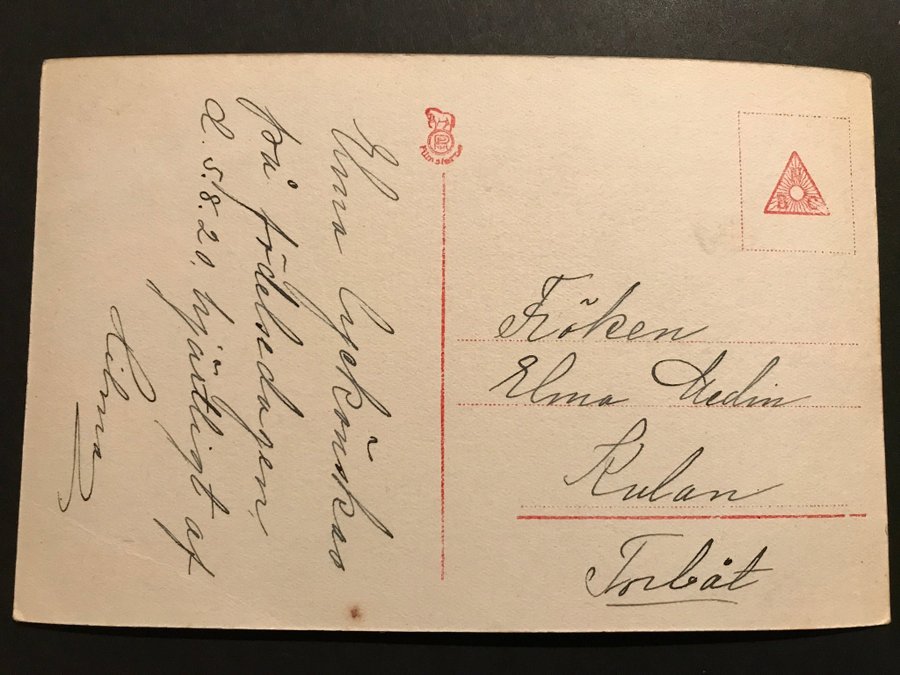 Elma lyckönskas
på födelsedagen
d. 5.8.20. hjärtligt af
Hilma
PR
Filmsterne
Fröken
Elma Hedin
Kulan
Torbåt